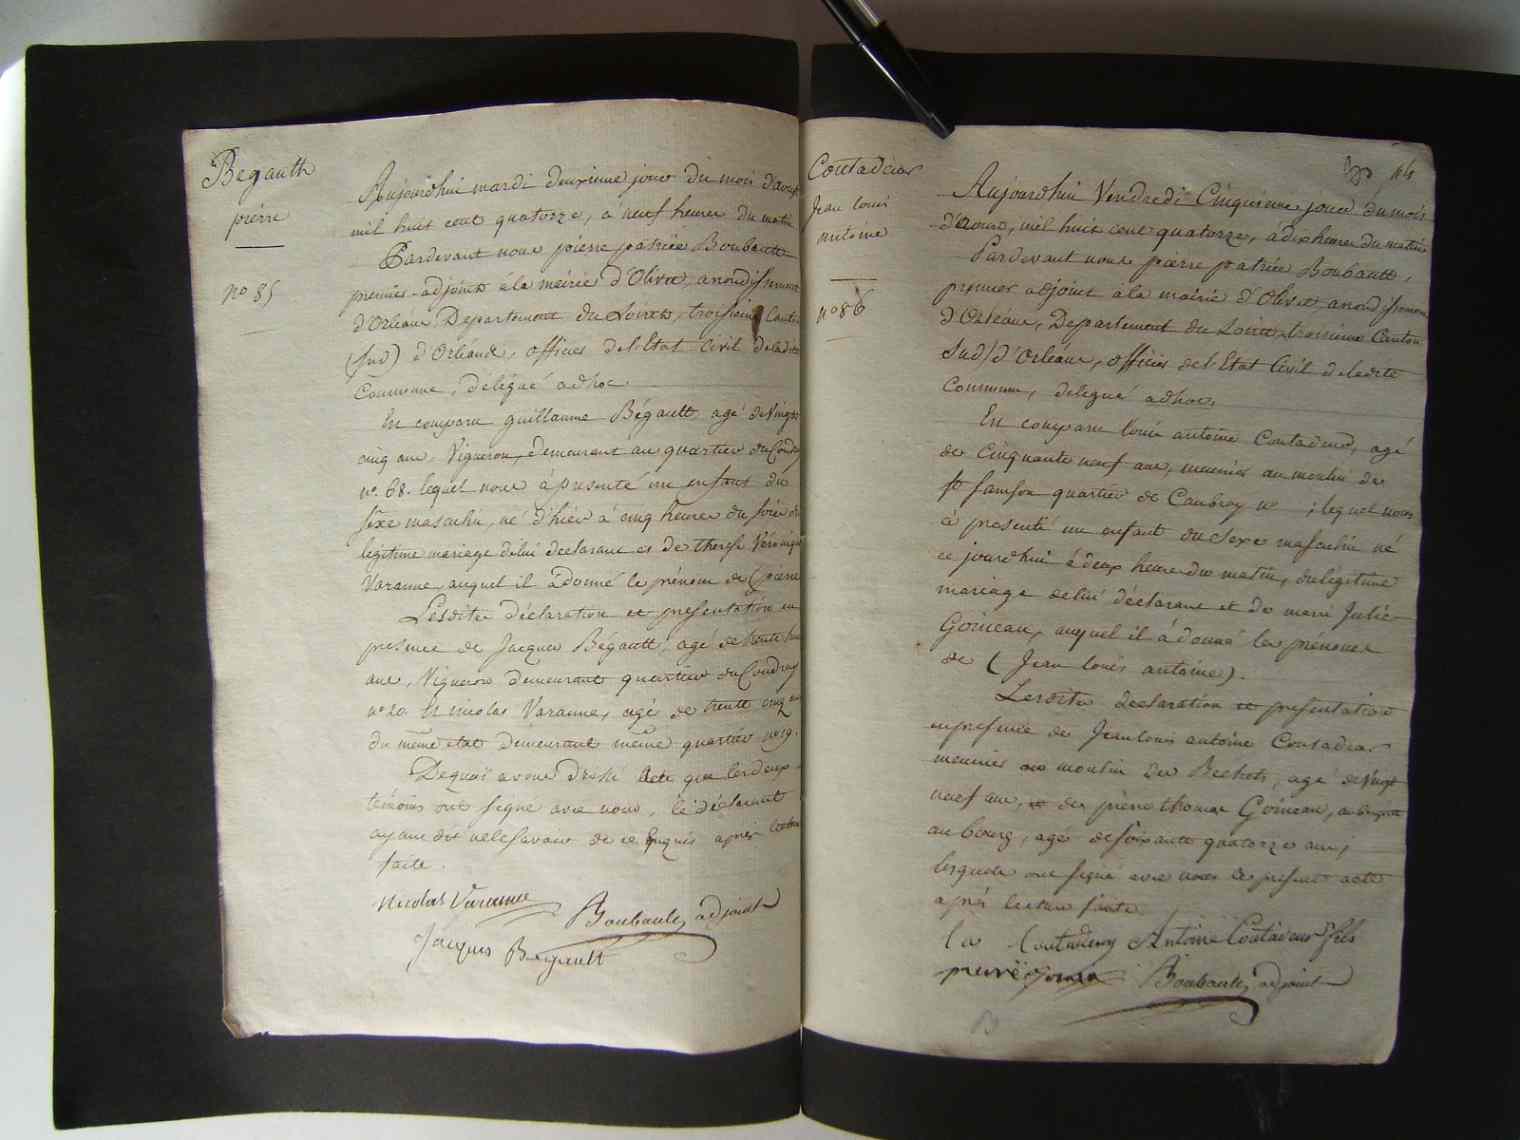 Begault
pierre
no 85
Aujourdhui mardi deuxieme jour du mois d'aoust
mil huit cent quatorze, a neuf heures du matin
Pardevant nous pierre patrice Boubault
premier adjoint à la mairie d'Olivet, arrondissement
d'Orléans Departement du Loiret, troisieme Canton
(sud) d'Orléans, officier de l'Etat Civil de ladite
Commune, délégué adhoc.
Est comparu guillaume Bégault agé de Vingt
cinq ans, Vigneron, demeurant au quartier du Coudray
no. 68. lequel nous à presenté un enfant du
sexe masculin, né d'hier à cinq heures du soir du
legitime mariage de lui declarant et de therese Véronique
Varanne auquel il à donné le prénom de (pierre
Lesdites déclaration et presentation en
presence de Jacques Bégault, agé de trente
ans, Vigneron demeurant quartier du Coudray
no 20. Et nicolas Varanne, agé de trente cinq ans
du même état demeurant même quartier no 19.
Dequoi avons dressé Acte que les deux
témoins ont signé avec nous, le déclarant
ayant dit ne le savoir de ce Enquis après lecture
faite.
Nicolas Varanne
Boubault, adjoint
Jacques Begault
Coutadeur
Jean louis
antoine
no 86
114
Aujourdhui Vendredi Cinquieme jour du mois
d'aoust, mil huit cent quatorze, à dix heures du matin
Pardevant nous pierre patrice Boubault,
premier adjoint à la mairie d'Olivet, arrondissement
d'Orléans, Departement du Loiret, troisieme Canton
Sud) d'Orléans, officier de l'Etat Civil de ladite
Commune, délégué adhoc,
Est comparu louis antoine Coutadeur, agé
de Cinquante neuf ans, meunier au moulin de
st samson quartier de Caubray no ; lequel nous
à presenté un enfant du Sexe masculin né
ce jourdhui à deux heures du matin, du légitime
mariage de lui déclarant et de marie Julie
Goineau, auquel il à donné les prénoms
de (Jean louis antoine).
Lesdites declaration et presentation
en presence de Jean louis antoine Coutadeur
meunier au moulin des Bechets, agé de Vingt
neuf ans, et de pierre thomas Goineau,
au bourg, agé de soixante quatorze ans,
lesquels ont signé avec nous le present acte
après lecture faite.
la Coutadeur Antoine Coutadeur fils
pierre
Boubault, adjoint